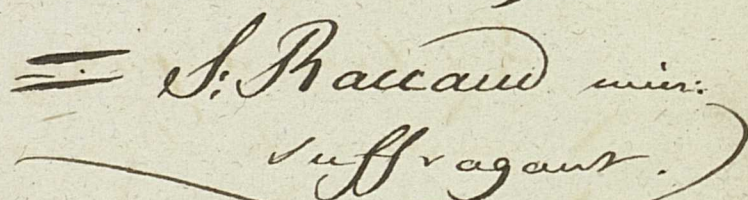 = S: Raccaud min:
suffragant.